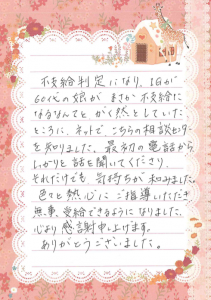 不支給判定になり、1日が
60代の娘が まさか 不支給に
なるなんてと がく然としていた
ところに、ネットで、こちらの相談センター
を知りました。最初の電話から
しっかりと話を聞いてくださり
それだけでも 気持ちが和みました。
色々と熱心に ご指導いただき
無事、受給できるようになりました。
心より感謝申し上げます。
ありがとうございました。